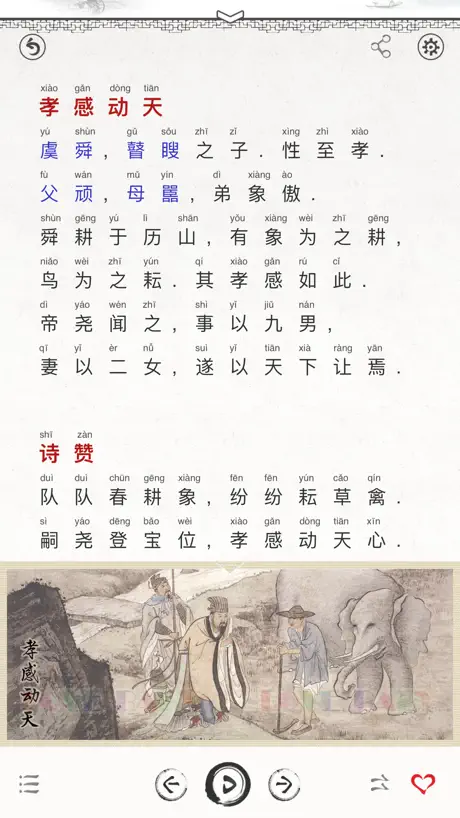 xiào gǎn dòng tiān
孝感动天
yú shùn gǔ sǒu zhī zǐ xìng zhì xiào
虞舜，瞽瞍之子．性至孝．
fù wán mǔ yín dì xiàng ào
父顽，母嚚，弟象傲．
shùn gēng yú lì shān yǒu xiàng wèi zhī gēng
舜耕于历山，有象为之耕，
niǎo wèi zhī yún qí xiào gǎn rú cǐ
鸟为之耘．其孝感如此．
dì yáo wén zhī shì yǐ jiǔ nán
帝尧闻之，事以九男，
qī yǐ èr nǚ suì yǐ tiān xià ràng yān
妻以二女，遂以天下让焉．
shī zàn
诗赞
duì duì chūn gēng xiàng fēn fēn yún cǎo qín
队队春耕象，纷纷耘草禽．
sì yáo dēng bǎo wèi xiào gǎn dòng tiān xīn
嗣尧登宝位，孝感动天心．
孝感动天